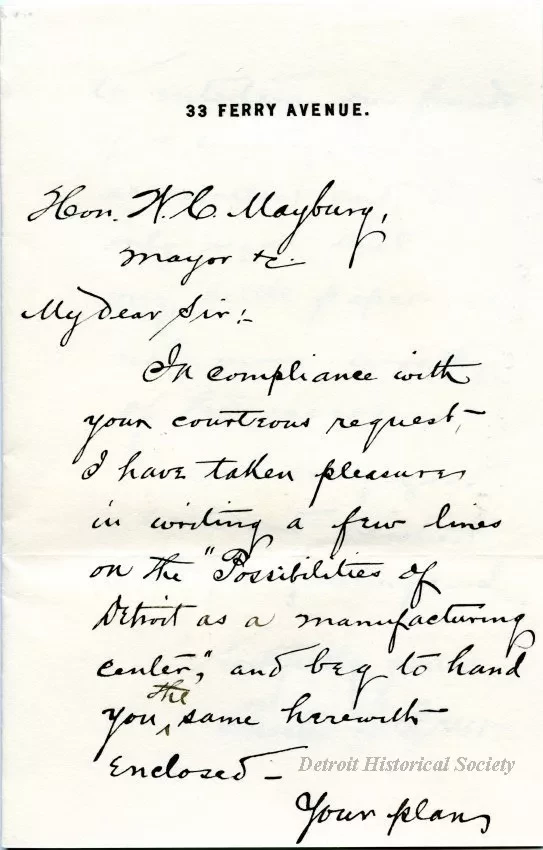 33 FERRY AVENUE.
Hon. W. C. Maybury,
Mayor &c.
My Dear Sir:-
In compliance with
your courteous request,
I have taken pleasure
in writing a few lines
on the "Possibilities of
Detroit as a manufacturing
center," and beg to hand
you the same herewith
Enclosed -
Detroit Historical Society
Your plan